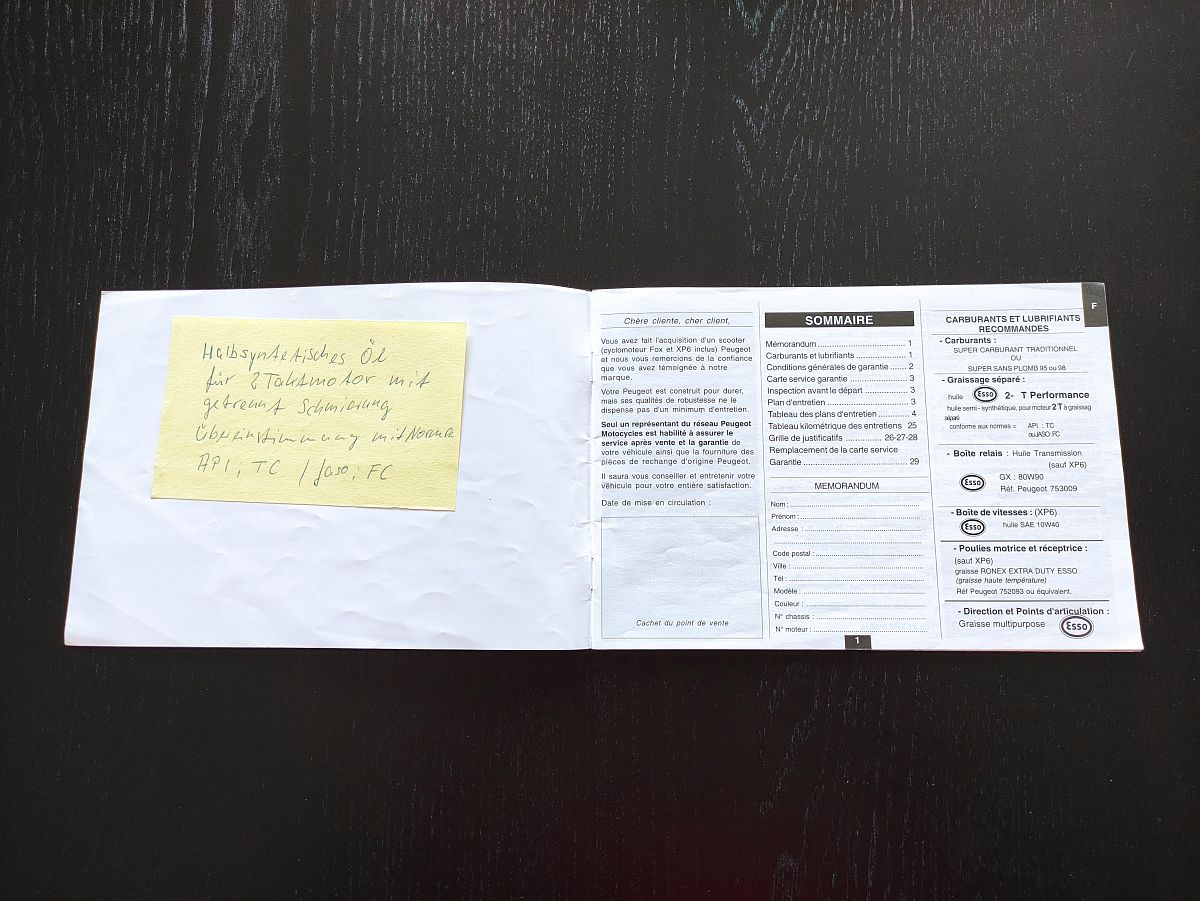 Halbsyntetisches Öl
für 2Taktmotor mit
getrennt Schmierung
Übereinstimmung mit Normen
API; TC / Jaso; FC
Chère cliente, cher client,
Vous avez fait l'acquisition d'un scooter
(cyclomoteur Fox et XP6 inclus) Peugeot
et nous vous remercions de la confiance
que vous avez témoignée à notre
marque.
Votre Peugeot est construit pour durer,
mais ses qualités de robustesse ne le
dispense pas d'un minimum d'entretien.
Seul un représentant du réseau Peugeot
Motocycles est habilité à assurer le
service après vente et la garantie de
votre véhicule ainsi que la fourniture des
pièces de rechange d'origine Peugeot.
Il saura vous conseiller et entretenir votre
véhicule pour votre entière satisfaction.
Date de mise en circulation :
Cachet du point de vente
SOMMAIRE
Mémorandum ........ 1
Carburants et lubrifiants ........ 1
Conditions générales de garantie ...... 2
Carte service garantie ........ 3
Inspection avant le départ ........ 3
Plan d'entretien ........ 3
Tableau des plans d'entretien ........ 4
Tableau kilométrique des entretiens 25
Grille de justificatifs ........ 26-27-28
Remplacement de la carte service
Garantie ........ 29
MEMORANDUM
Nom : ........
Prénom : ........
Adresse : ........
Code postal : ........
Ville : ........
Tél : ........
Modèle : ........
Couleur : ........
N° chassis : ........
N° moteur : ........
1
F
CARBURANTS ET LUBRIFIANTS
RECOMMANDES
- Carburants :
SUPER CARBURANT TRADITIONNEL
OU
SUPER SANS PLOMB 95 ou 98
- Graissage séparé :
huile Esso 2- T Performance
huile semi - synthétique, pour moteur 2 T à graissag
séparé
conforme aux normes = API : TC
ou JASO: FC
- Boîte relais : Huile Transmission
(sauf XP6)
Esso GX : 80W90
Réf. Peugeot 753009
- Boîte de vitesses : (XP6)
Esso huile SAE 10W40
- Poulies motrice et réceptrice :
(sauf XP6)
graisse RONEX EXTRA DUTY ESSO
(graisse haute température)
Réf Peugeot 752093 ou équivalent.
- Direction et Points d'articulation :
Graisse multipurpose Esso